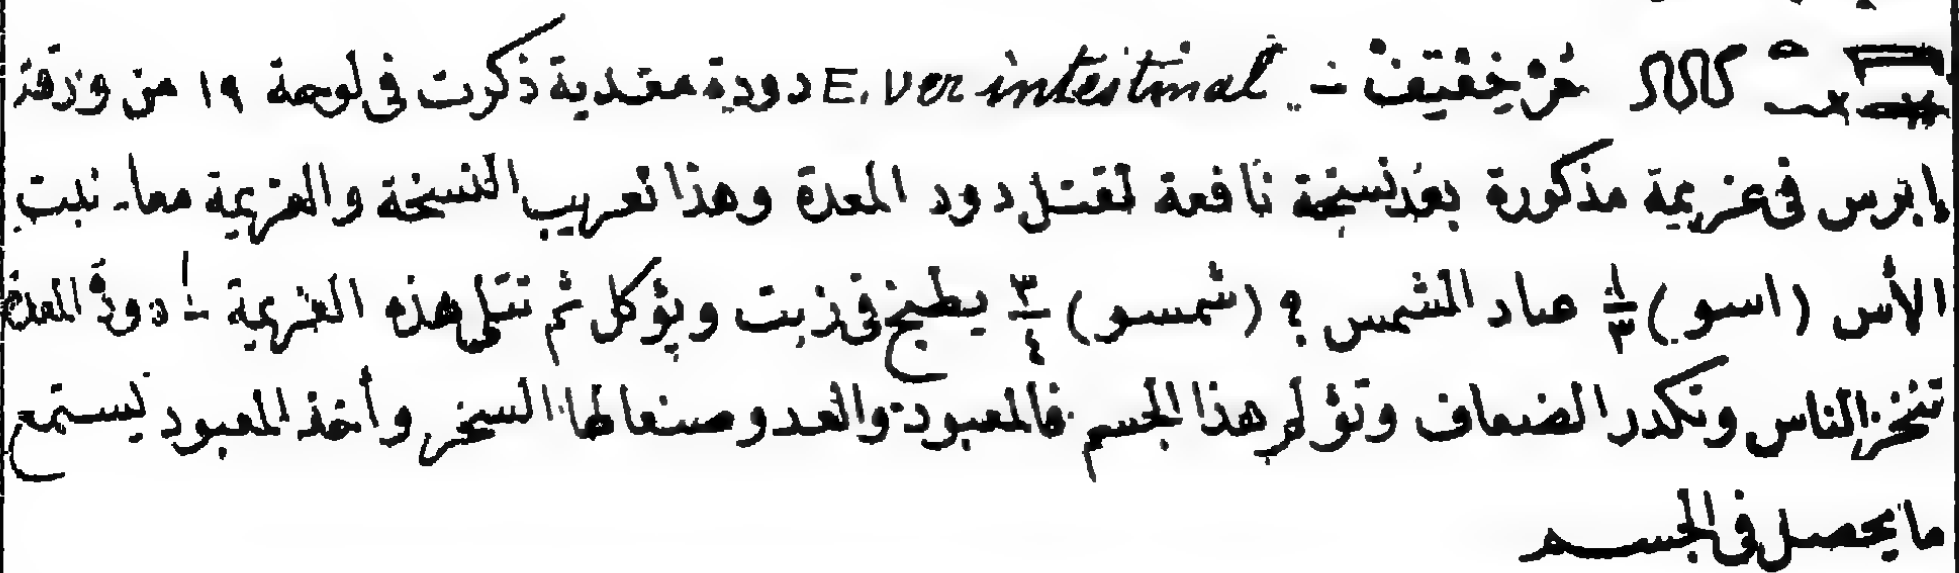 حُرْ خِفْتِفْ - E. ver intestinal دودة معدية ذكرت فى لوحة ١٩ من ورقة
إبرس فى عزيمة مذكورة بعد نسخة نافعة لقتل دود المعدة وهذا تعريب النسخة والعزيمة معا. نبت
الأس (اسو) ١/٣ صاد الشمس ؟ (شمسو) ٣/٤ يطبخ فى زيت ويؤكل ثم تتلى هذه العزيمة - ا دودة المعدة
تنخز الناس وتكدر الضعاف وتؤلم هذا الجسم فالمعبود والعدو صنعا لها السحر وأخذ المعبود يستمع
ما يحصل فى الجسم